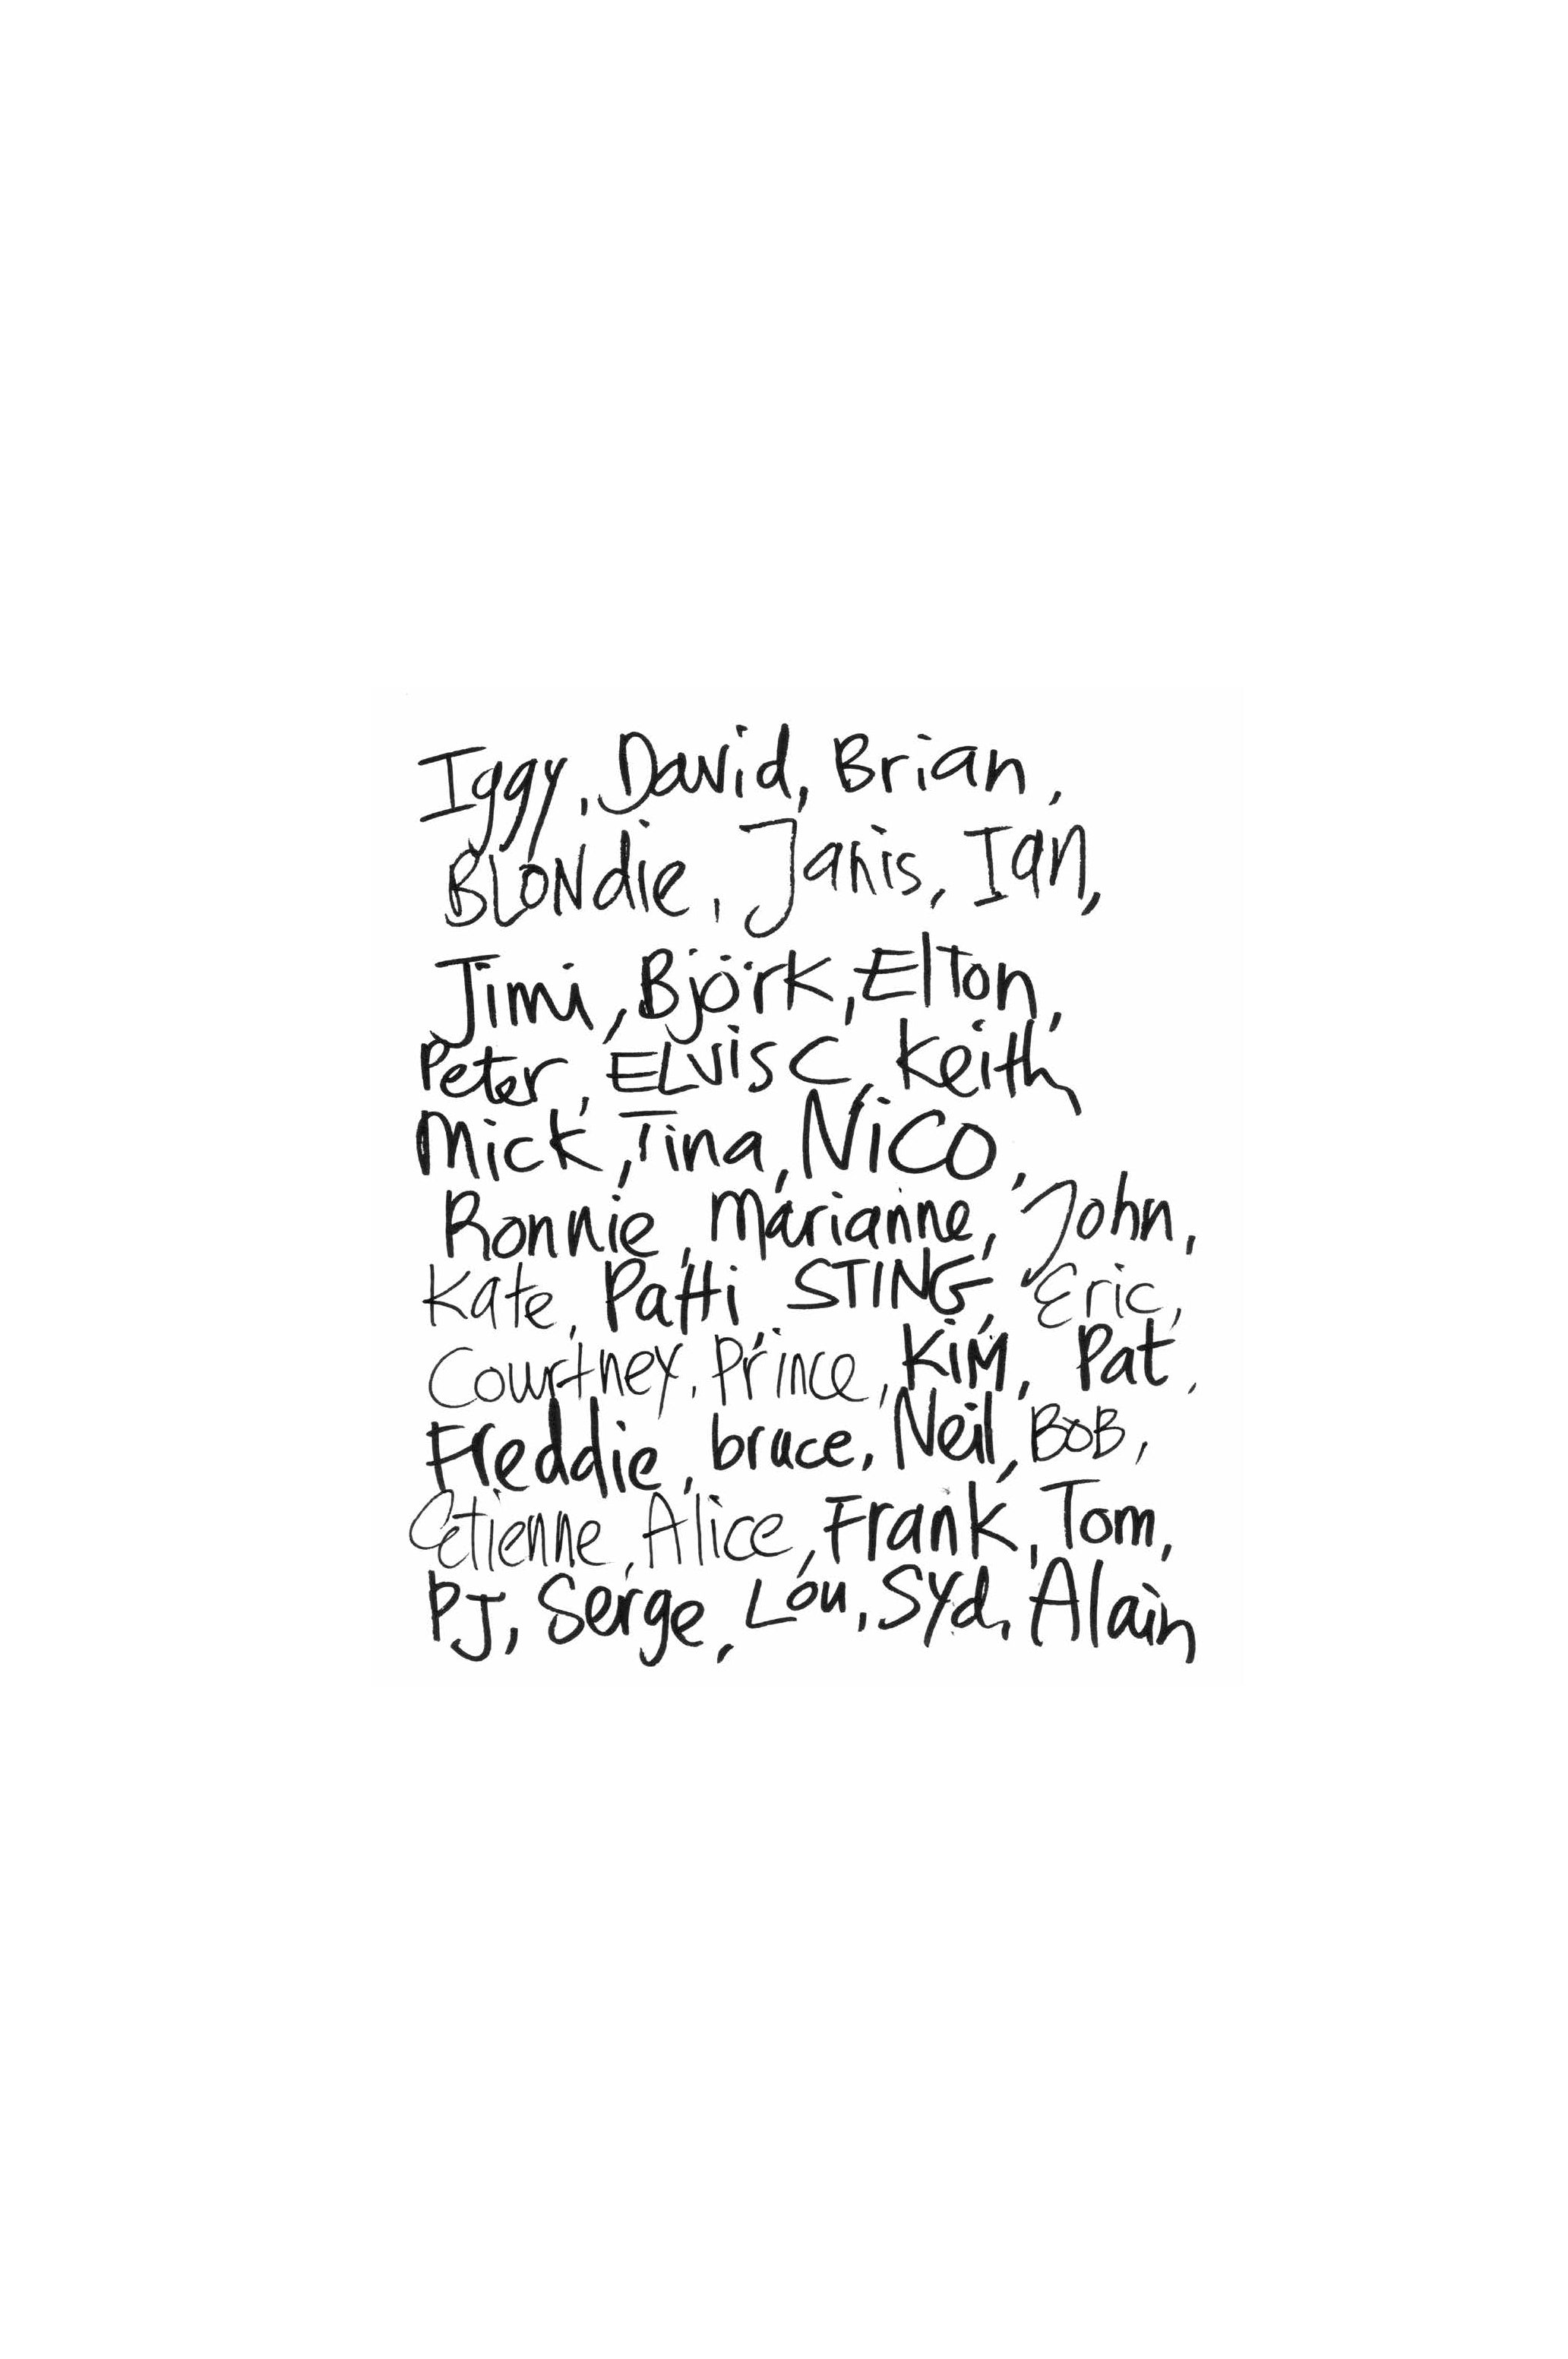 Iggy, David, Brian,
BLONdie, Janis, Ian,
Jimi, Björk, Elton,
Peter, ELViS C Keith,
Mick, Tina, NiCO,
Ronnie, Marianne, John,
Kate, Patti STING, Eric,
Courtney, Prince, KiM, Pat,
Freddie, bruce, Neil, BoB,
Etienne, Alice, Frank, Tom,
PJ, Serge, Lou, Syd, Alain,